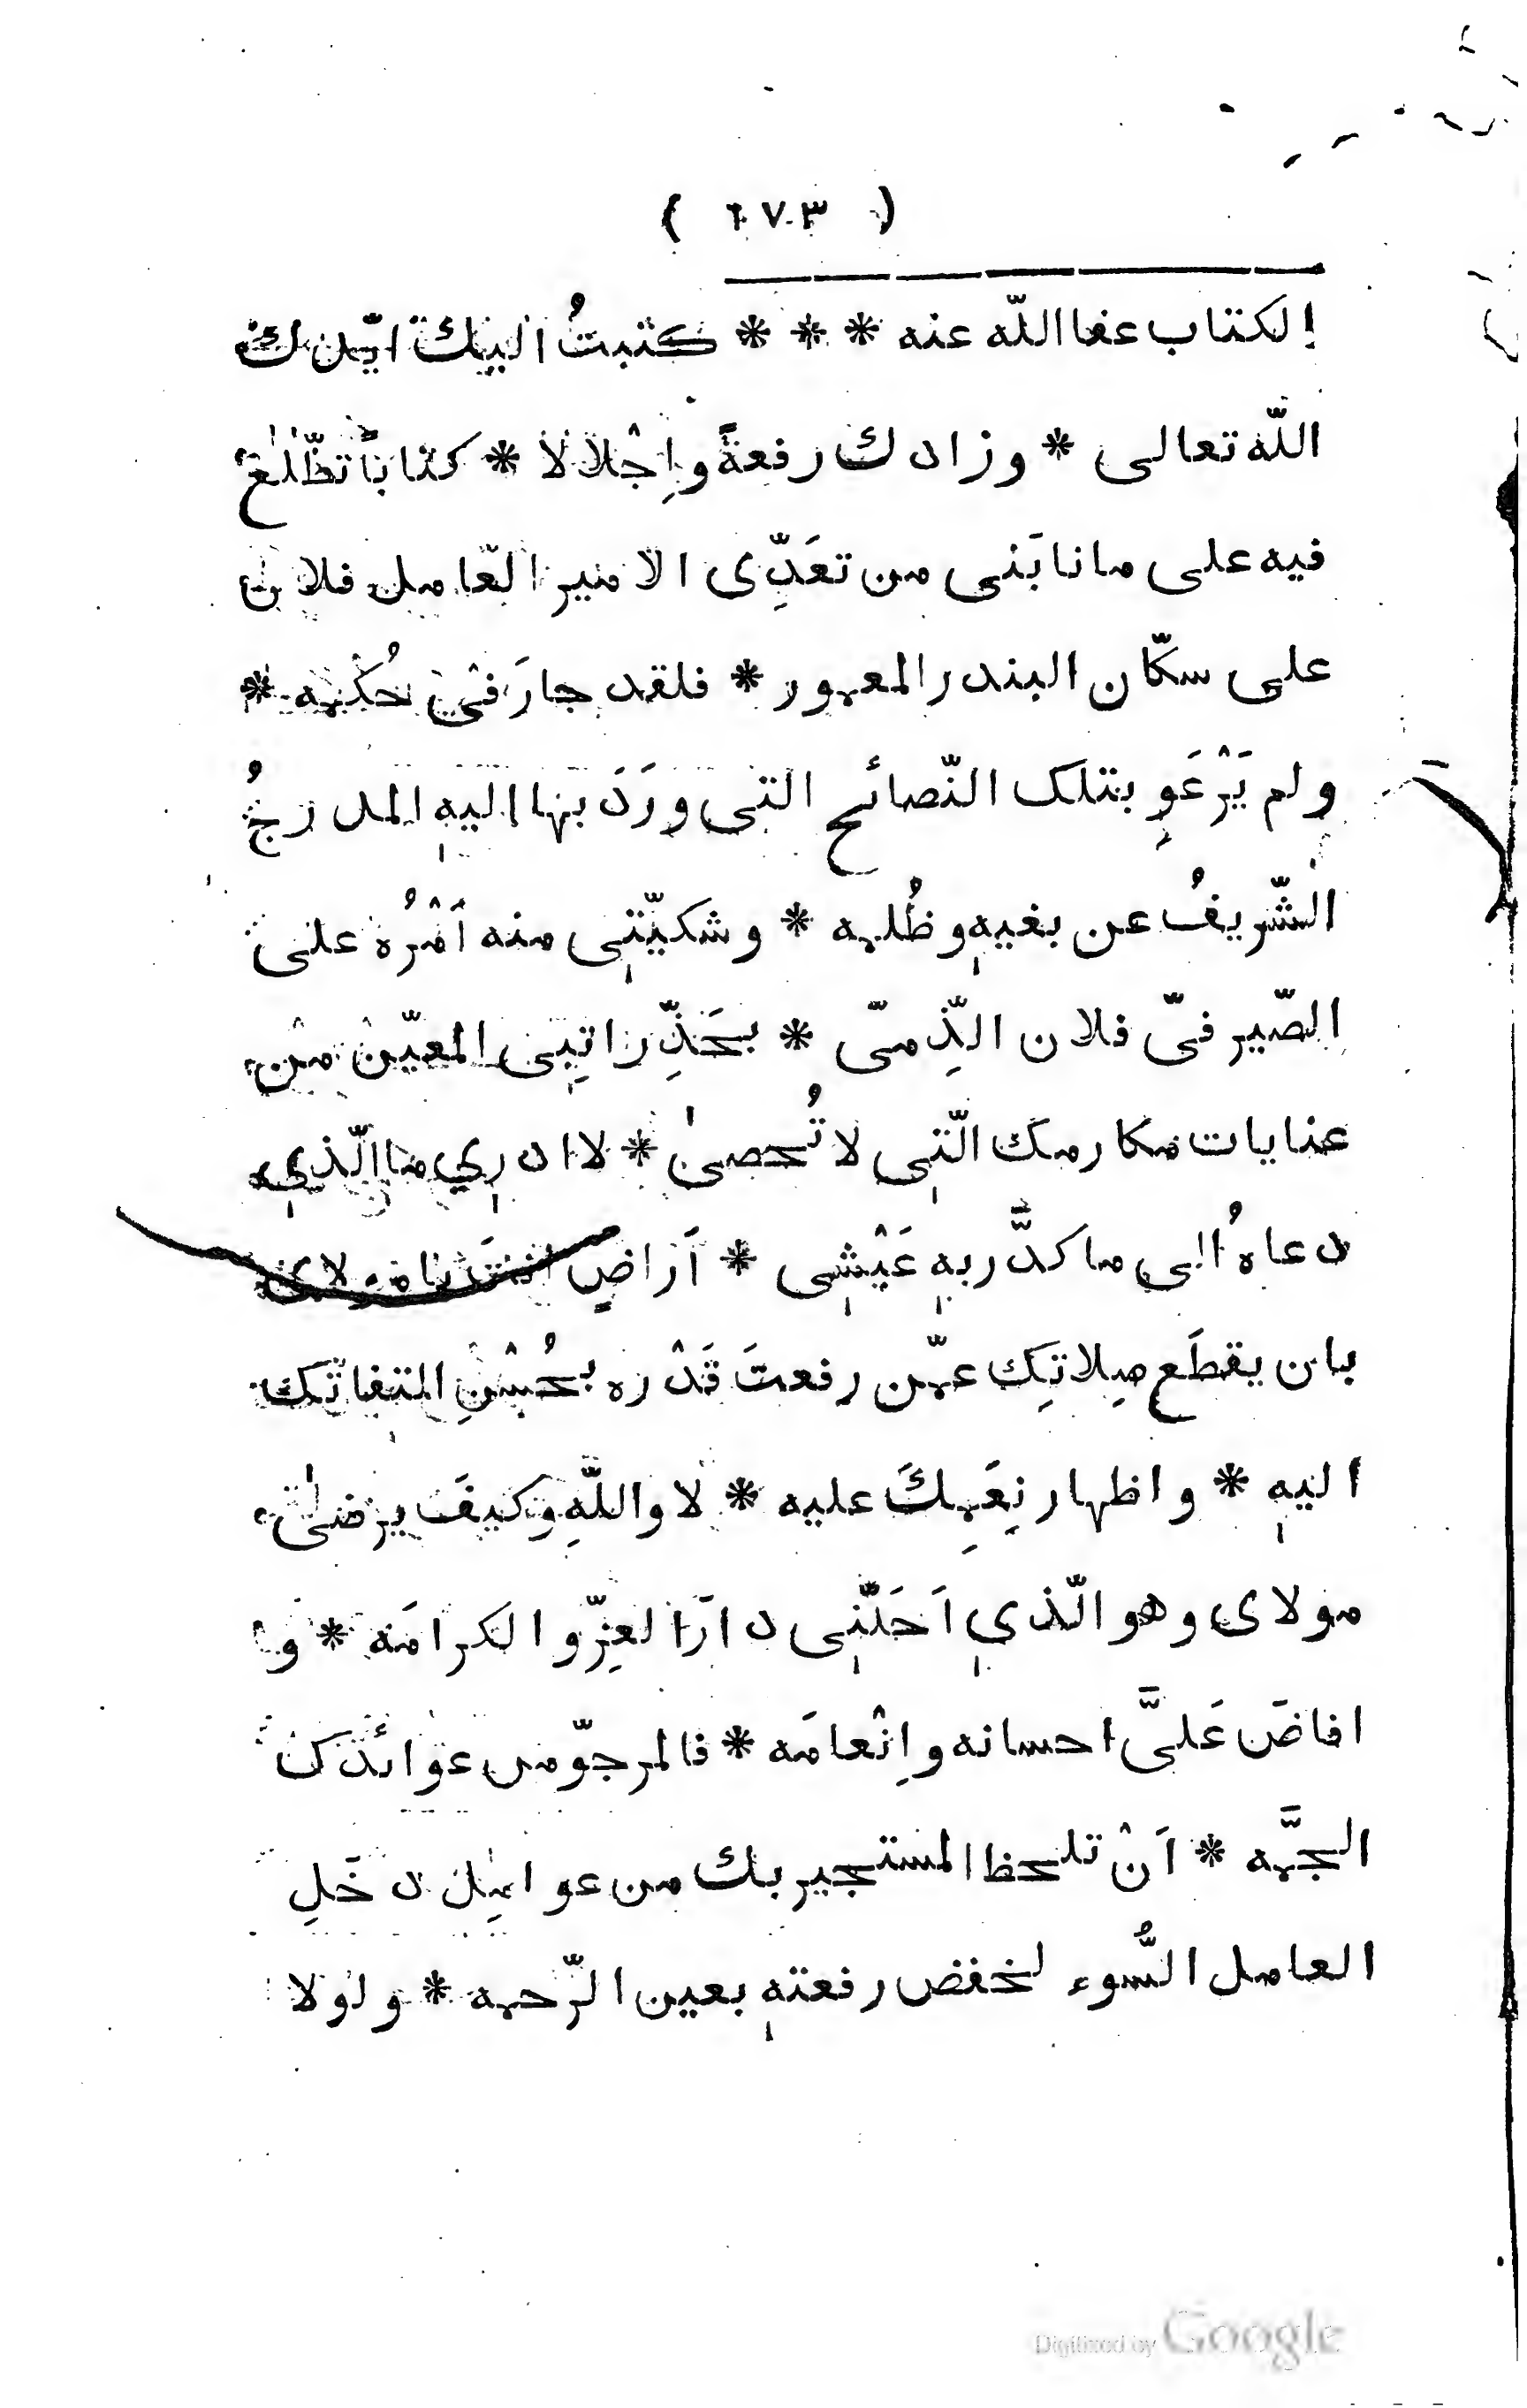 ( ١٧٣ )
الكتاب عفا اللّه عنه * * * كتبتُ اليك ايّدك
اللّه تعالى * وزادك رفعةً واِجْلالا * كتابًا تطّلع
فيه على ما نابَنى من تعَدِّى الامير العّامل فلان
على سكّان البندر المعمور * فلقد جارَ فى حُكْمِه *
ولم يَرْعَوِ بتلك النّصائح التى ورَدَ بها اليهِ المدرجُ
الشّريفُ عن بغيهِ وظُلمه * وشكيّتى منه اَمْرُه على
الصّيرفىّ فلان الذّمىّ * بحَذِّ راتِبى المعيّن من
عنايات مكارمك الّتى لا تُحصىٰ * لا ادرِي ما الّذي
دعاهُ الى ما كدَّر بهِ عَيْشى * اَراضٍ افنَدينا مولاى
بان يقطَع صِلاتِك عمّن رفعتَ قَدْره بحُسْنِ التفاتك
اليهِ * واظهار نِعَمِكَ عليه * لا واللّهِ وكيفَ يرضىٰ
مولاى وهو الّذي اَحَلّنى دارَ العِزّ والكرامَه * و
افاضَ عَلىَّ احسانه واِنْعامَه * فالمرجوّ من عوائدك
الجمَّه * اَنْ تلحظ المستجير بك من عوامِل دَخَلِ
العامل السُّوء لخفض رفعتهِ بعين الرّحمه * ولولا
Digitized by Google